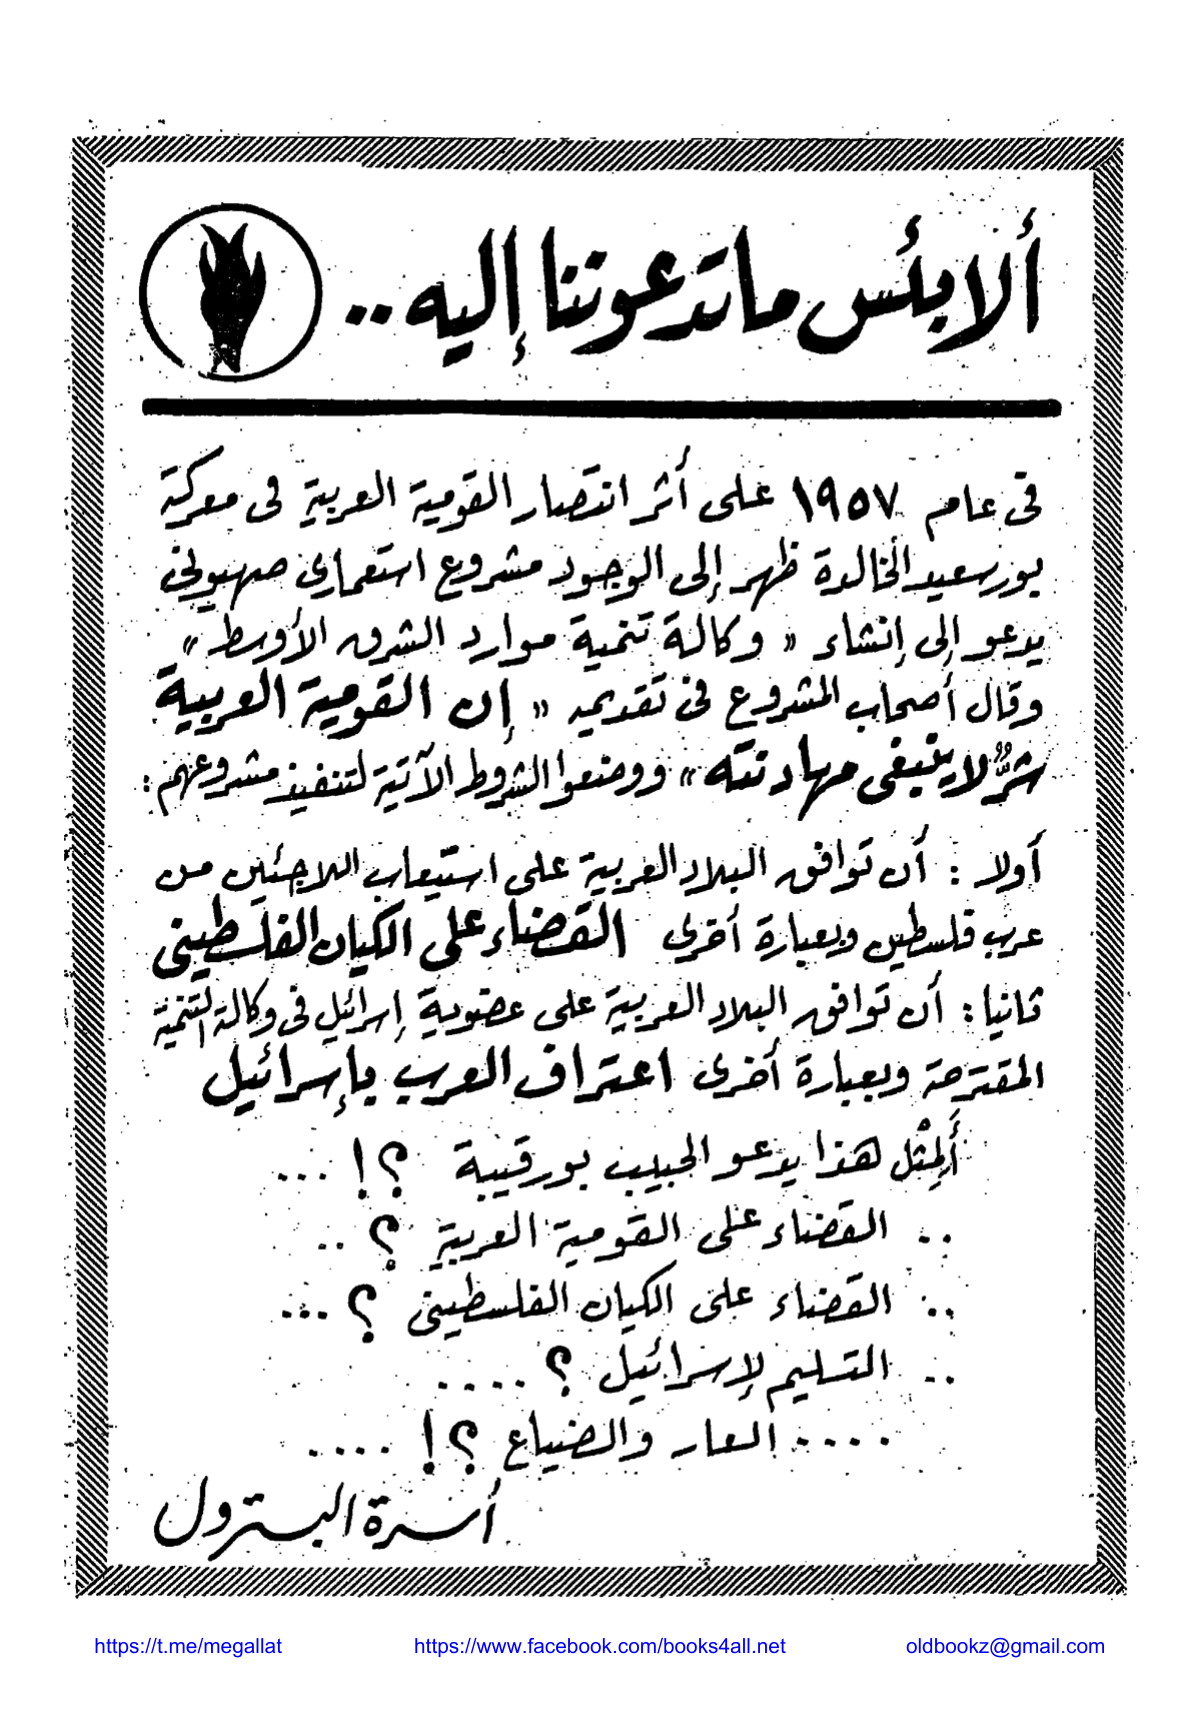 ألا بئس ما تدعوننا إليه ..
فى عام ١٩٥٧ على أثر انتصار القومية العربية فى معركة
بورسعيد الخالدة ظهر إلى الوجود مشروع استعمارى صهيونى
يدعو إلى إنشاء « وكالة تنمية موارد الشرق الأوسط »
وقال أصحاب المشروع فى تقديمه « إن القومية العربية
شرٌّ لا ينبغى مهادنته » ووضعوا الشروط الآتية لتنفيذ مشروعهم :
أولا : أن توافق البلاد العربية على استيعاب اللاجئين من
عرب فلسطين وبعبارة أخرى القضاء على الكيان الفلسطينى
ثانيا : أن توافق البلاد العربية على عضوية إسرائيل فى وكالة التنمية
المقترحة وبعبارة أخرى اعتراف العرب بإسرائيل
أَلِمِثْل هذا يدعو الحبيب بورقيبة ؟! ...
.. القضاء على القومية العربية ؟ ..
.. القضاء على الكيان الفلسطينى ؟ ...
.. التسليم لإسرائيل ؟ ....
.... العار والضياع ؟! ....
أسرة البترول
https://t.me/megallat https://www.facebook.com/books4all.net oldbookz@gmail.com